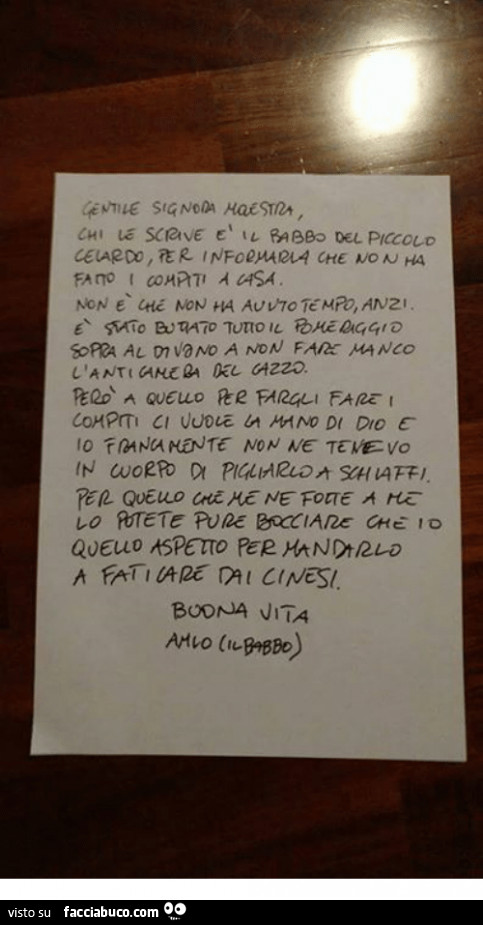 GENTILE SIGNORA MAESTRA,
CHI LE SCRIVE E' IL BABBO DEL PICCOLO
CELARDO, PER INFORMARLA CHE NON HA
FATTO I COMPITI A CASA.
NON È CHE NON HA AVUTO TEMPO, ANZI.
E' STATO BUTTATO TUTTO IL POMERIGGIO
SOPRA AL DIVANO A NON FARE MANCO
L'ANTICAMERA DEL CAZZO.
PERÒ A QUELLO PER FARGLI FARE I
COMPITI CI VUOLE LA MANO DI DIO E
IO FRANCAMENTE NON NE TENEVO
IN CUORPO DI PIGLIARLO A SCHIAFFI.
PER QUELLO CHE ME NE FOTTE A ME
LO POTETE PURE BOCCIARE CHE IO
QUELLO ASPETTO PER MANDARLO
A FATICARE DAI CINESI.
BUONA VITA
(IL BABBO)
visto su facciabuco.com